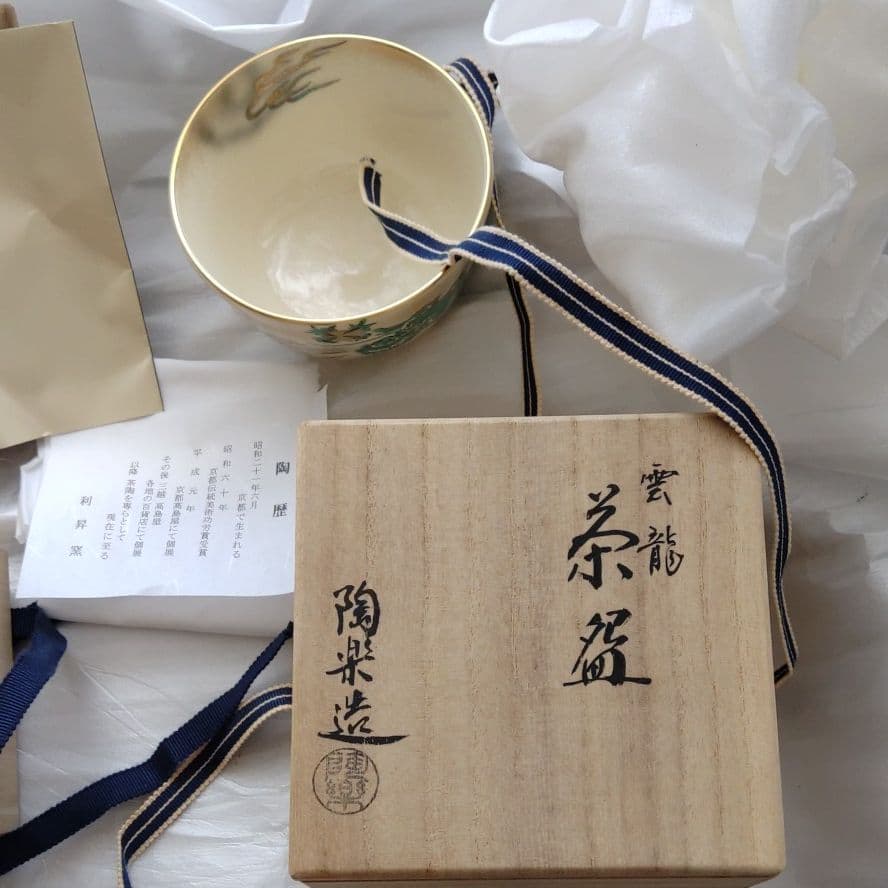 雲龍
茶盌
陶楽造
陶楽
陶歴
昭和二十一年六月
京都で生まれる
昭和六十年
京都伝統美術功労賞受賞
平成元年
京都高島屋にて個展
その後三越高島屋
各地の百貨店にて個展
以降茶陶を専らとして
現在に至る
利昇窯